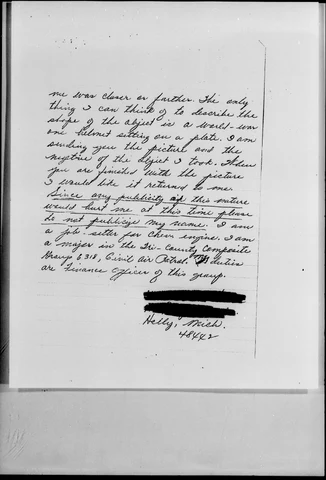 me was closer or farther. The only
thing I can think of to describe the
shape of the object is a world-war
one helmet sitting on a plate. I am
sending you the picture and the
negtive of the object I took. When
you are finished with the picture
I would like it returned to me.
Since any publicity of this nature
would hurt me at this time please
do not publicize my name. I am
a job setter for Chevy engine. I am
a major in the Tri-County Composite
Group 6318, Civil Air Patrol. My duties
are Finance officer of this group.
Holly, Mich.
48442